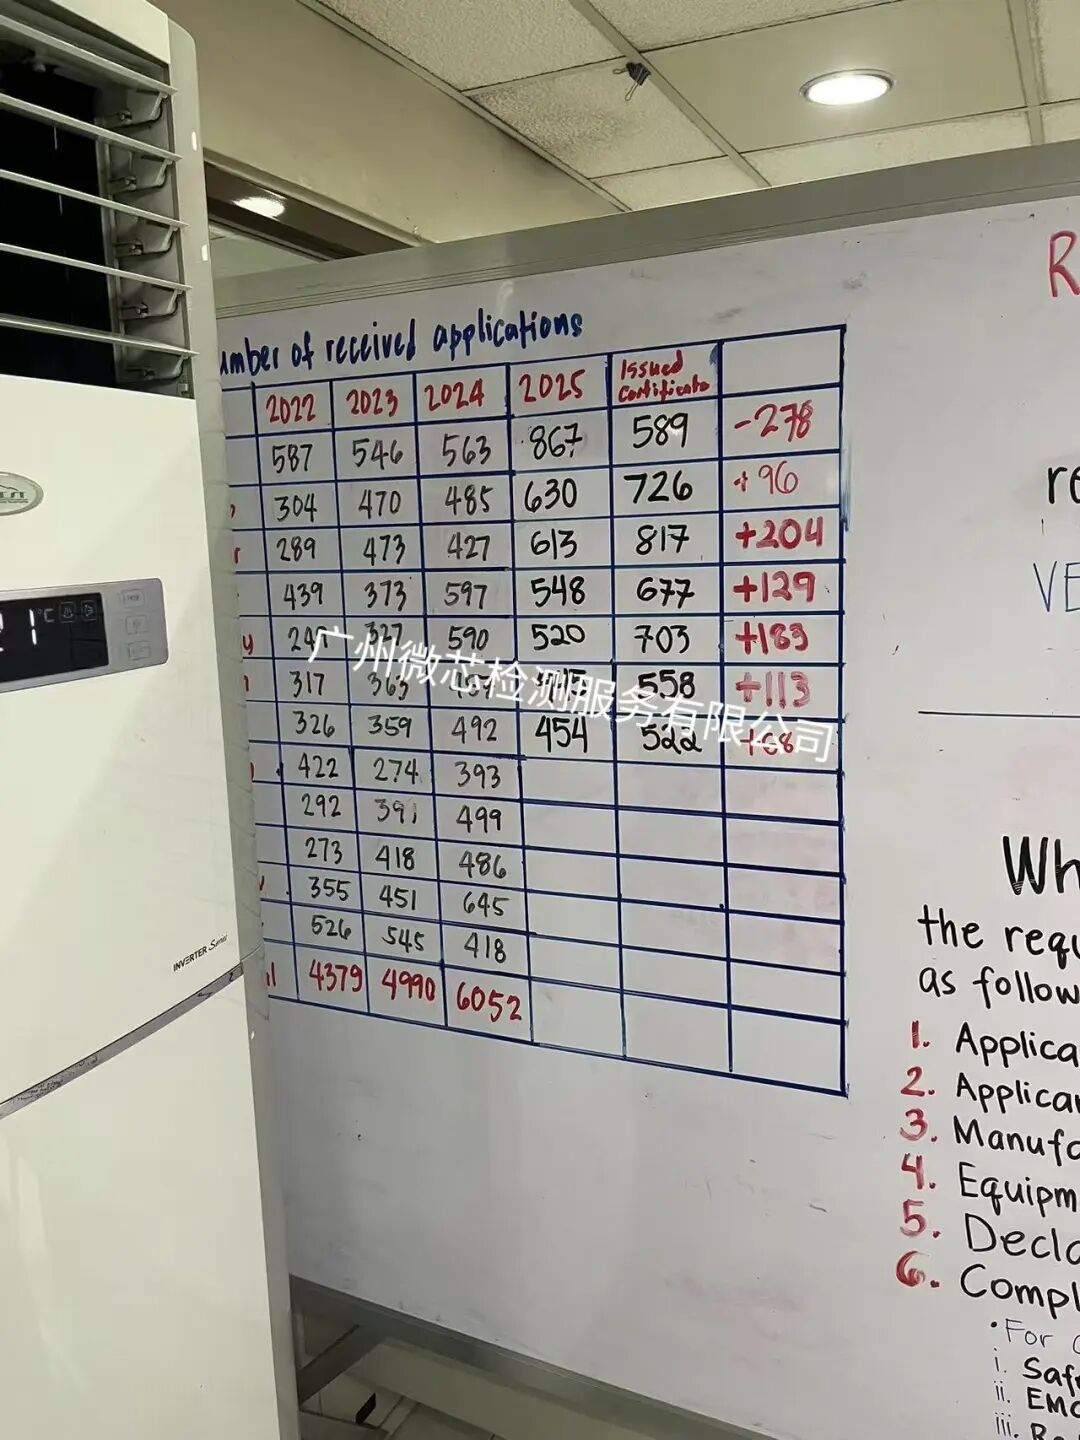 umber of received applications
2022 2023 2024 2025 Issued Certificate
587 546 563 867 589 -278
304 470 485 630 726 +96
r 289 473 427 613 817 +204
439 373 597 548 677 +129
y 590 520 703 +183
317 363 558 +113
326 359 492 454 522 +68
422 274 393
292 391 499
273 418 486
355 451 645
526 545 418
l 4379 4990 6052
广州微芯检测服务有限公司
°C
INVERTER Series
R
re
VE
Wh
the requ
as follow
1. Applica
2. Applican
3. Manufa
4. Equipm
5. Decla
6. Compl
• For
i. Safe
ii. EMC
iii.